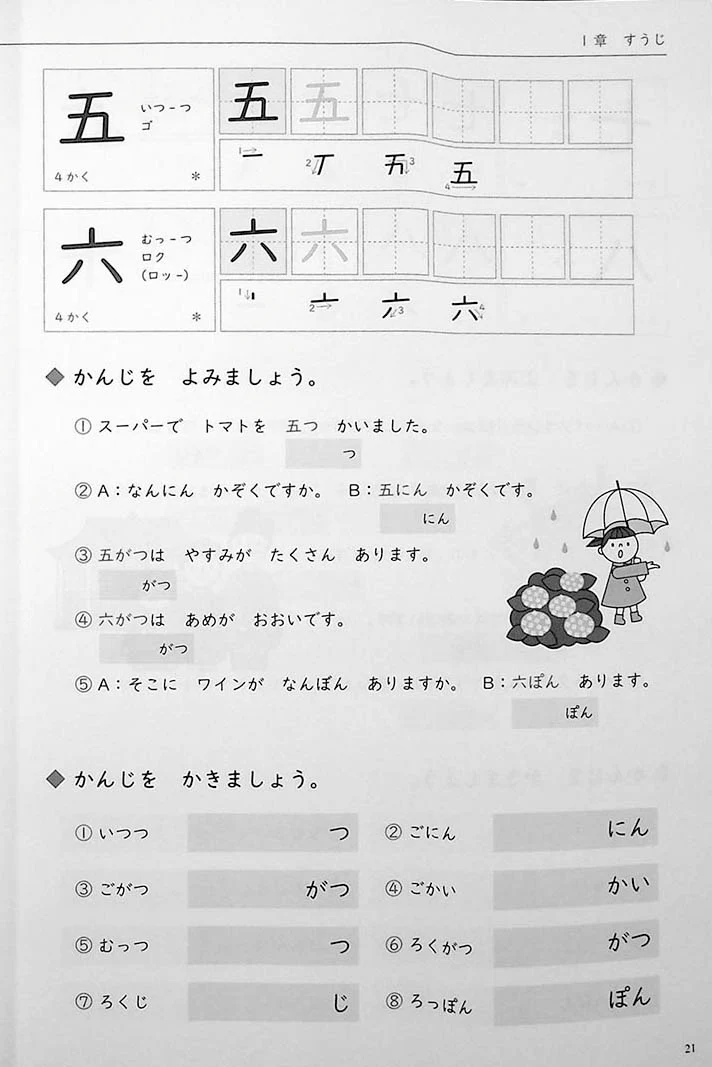 1章　すうじ
五
いつ-つ
ゴ
4かく　*
五 五
1 2 3 4
一 丅 五
六
むっ-つ
ロク
(ロッ-)
4かく　*
六 六
1 2 3 4
亠 六
◆かんじを　よみましょう。
①スーパーで　トマトを　五つ　かいました。
つ
②A：なんにん　かぞくですか。　B：五にん　かぞくです。
にん
③五がつは　やすみが　たくさん　あります。
がつ
④六がつは　あめが　おおいです。
がつ
⑤A：そこに　ワインが　なんぼん　ありますか。　B：六ぽん　あります。
ぽん
◆かんじを　かきましょう。
①いつつ　つ　②ごにん　にん
③ごがつ　がつ　④ごかい　かい
⑤むっつ　つ　⑥ろくがつ　がつ
⑦ろくじ　じ　⑧ろっぽん　ぽん
21